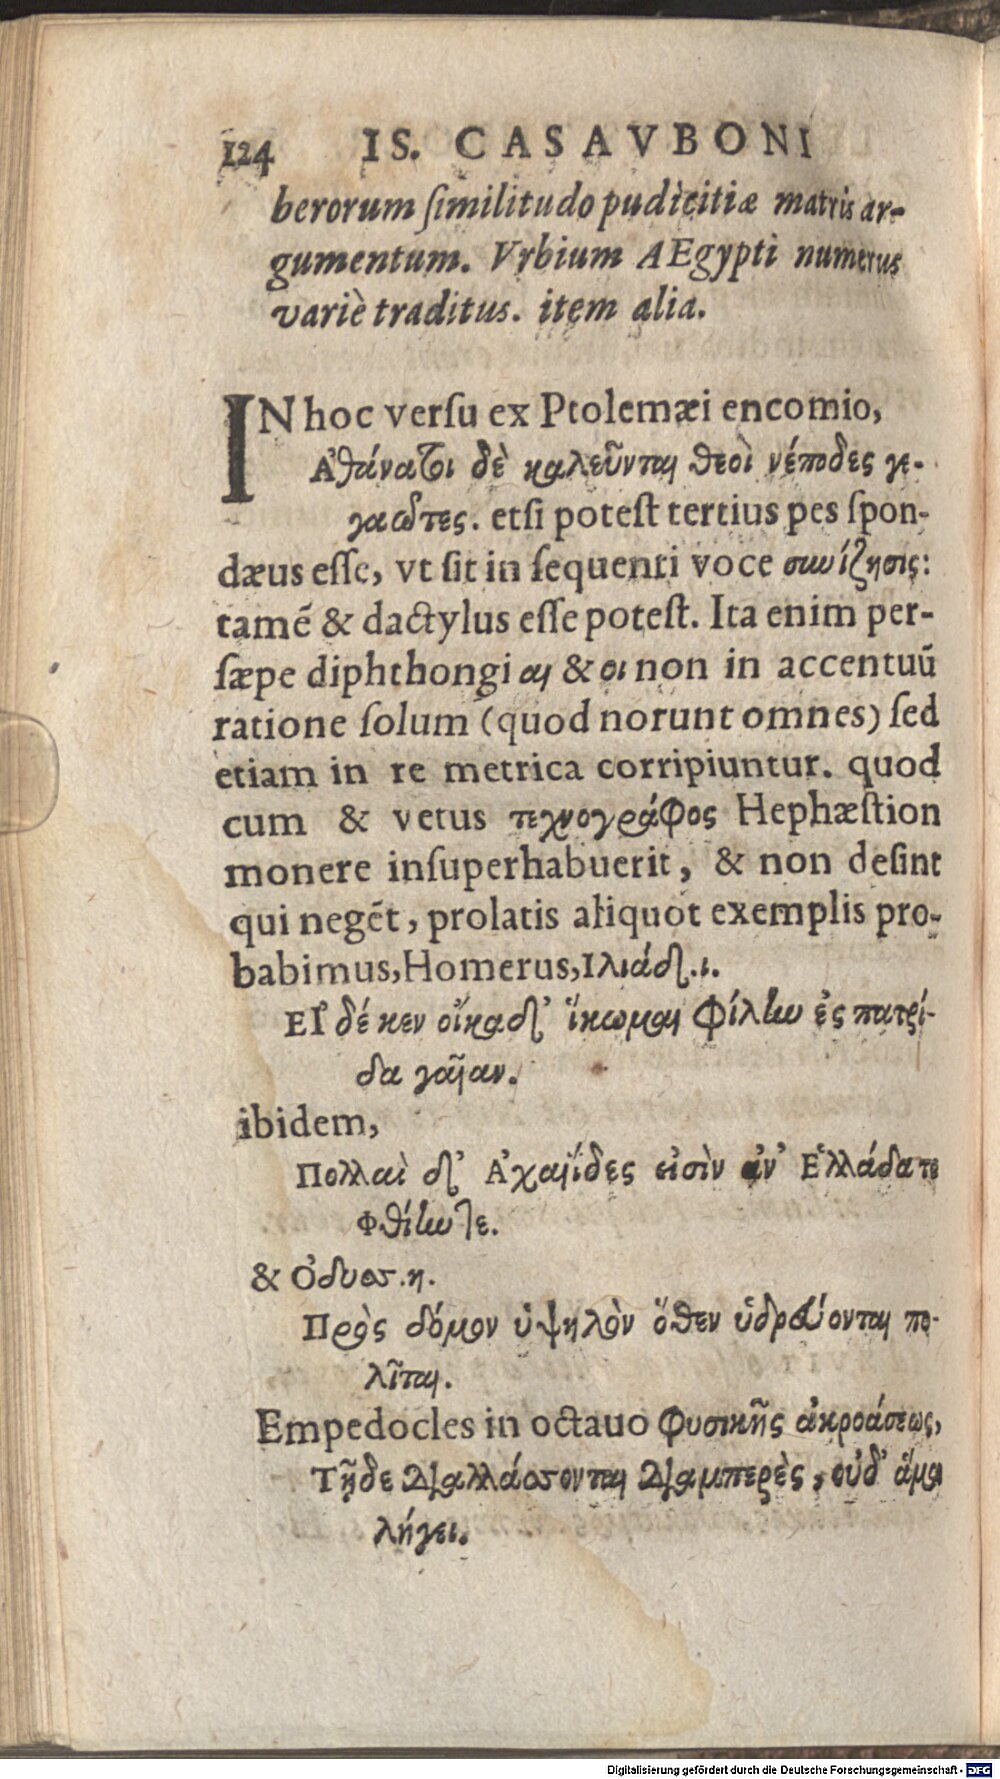 124 IS. CASAVBONI
berorum similitudo pudicitiæ matris ar-
gumentum. Vrbium AEgypti numerus
variè traditus. item alia.
IN hoc versu ex Ptolemæi encomio,
Ἀθάνατοι δὲ καλεῦνται θεοὶ νέποδες γε-
γαῶτες. etsi potest tertius pes spon-
dæus esse, vt sit in sequenti voce συνίζησις:
tamē & dactylus esse potest. Ita enim per-
sæpe diphthongi αι & οι non in accentuū
ratione solum (quod norunt omnes) sed
etiam in re metrica corripiuntur. quod
cum & vetus τεχνογράφος Hephæstion
monere insuperhabuerit, & non desint
qui negēt, prolatis aliquot exemplis pro-
babimus, Homerus, Ιλιάδ. ι.
Εἰ δέ κεν οἴκαδ' ἵκωμαι φίλην ἐς πατρί-
δα γαῖαν.
ibidem,
Πολλαὶ δ' Ἀχαιΐδες εἰσὶν ἀν' Ἑλλάδα τε
Φθίην τε.
& Ὀδυσσ. η.
Πρὸς δόμον ὑψηλὸν ὅθεν ὑδρεύονται πο-
λῖται.
Empedocles in octauo φυσικῆς ἀκροάσεως,
Τῇδε διαλλάσσονται διαμπερὲς, οὐδ' ἅμα
λήγει.
Digitalisierung gefördert durch die Deutsche Forschungsgemeinschaft - DFG